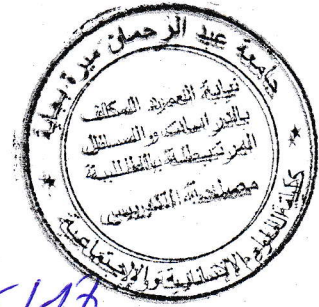 جامعة عبد الرحمان ميرة بجاية
نيابة العميد المكلف
بالدراسات والمسائل
المرتبطة بالطلبة
مصلحة التدريس
كلية العلوم الإنسانية والإجتماعية